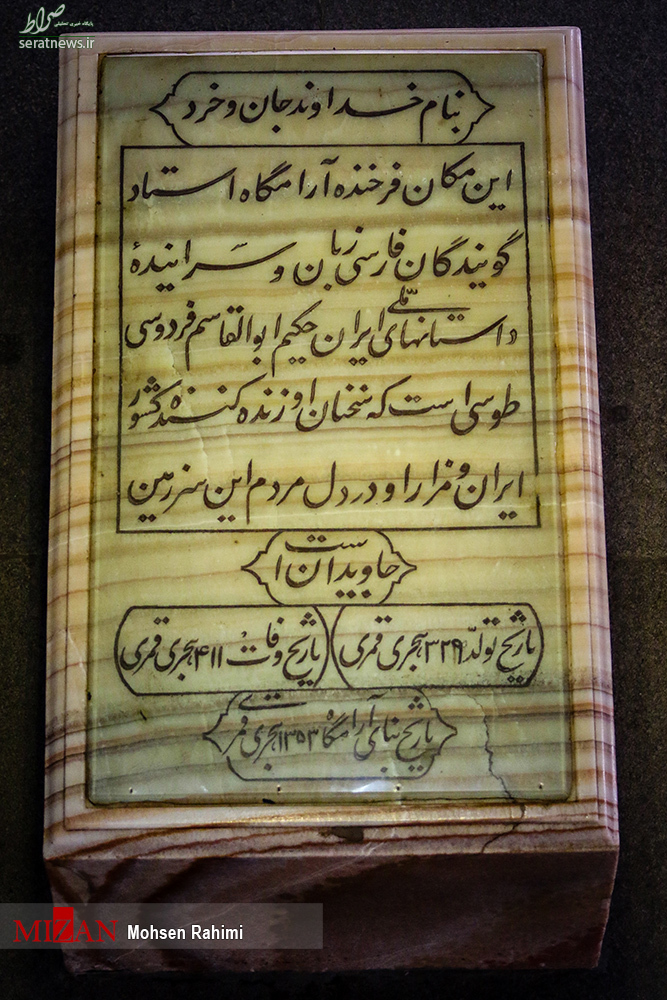 صراط
پایگاه خبری تحلیلی
seratnews.ir
بنام خداوند جان و خرد
این مکان فرخنده آرامگاه استاد
گویندگان فارسی زبان و سرایندهٔ
داستانهای ملّی ایران حکیم ابوالقاسم فردوسی
طوسی است که سخنان او زنده کننده کشور
ایران و مزار او در دل مردم این سرزمین
جاویدان است
تاریخ تولّد ۳۲۹ هجری قمری
تاریخ وفات ۴۱۱ هجری قمری
تاریخ بنای آرامگاه ۱۳۵۳ هجری قمری
MIZAN Mohsen Rahimi